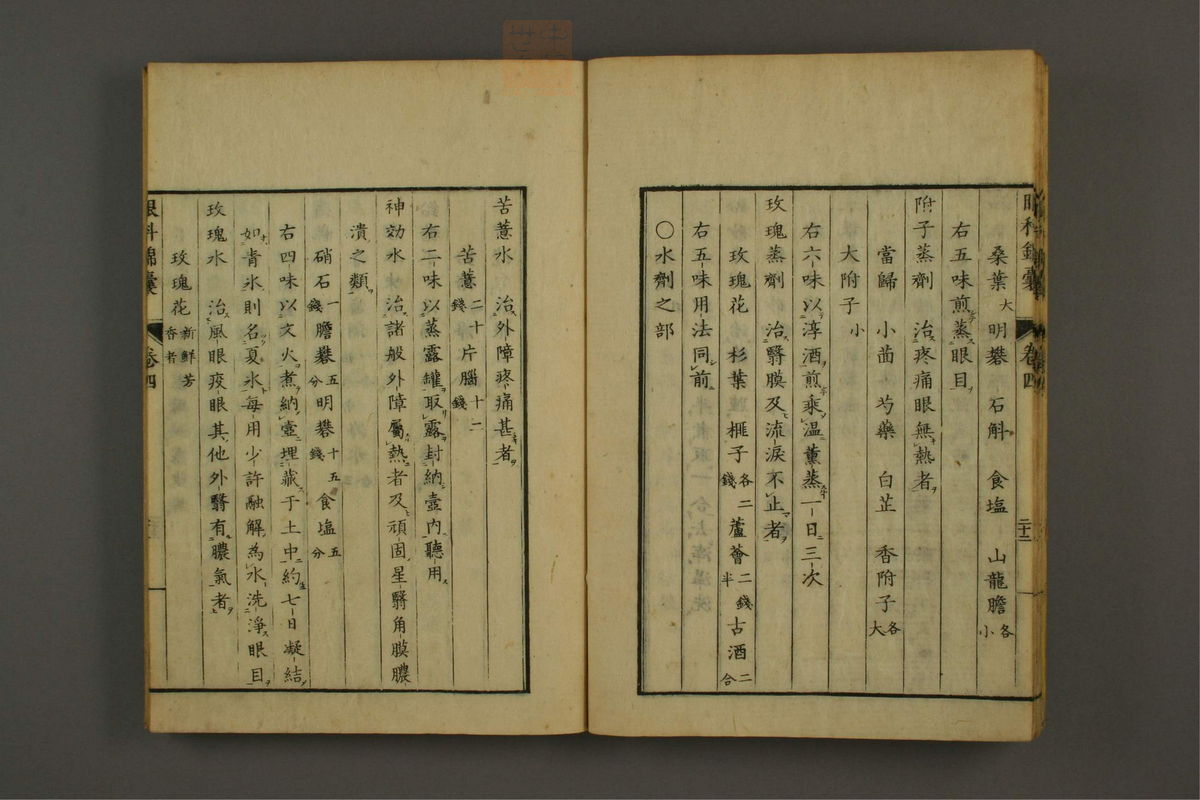 眼科錦囊 卷四 二十二
桑葉大 明礬 石斛 食塩 山龍膽各小
右五味煎蒸眼目
附子蒸劑 治疼痛眼無熱者
當歸 小茴 芍藥 白芷 香附子各大
大附子小
右六味以淳酒煎乘温薰蒸一日三次
玫瑰蒸劑 治翳膜及流淚不止者
玫瑰花 杉葉 榧子各二錢 蘆薈二錢半 古酒二合
右五味用法同前
○水劑之部
苦薏水 治外障疼痛甚者
苦薏二十錢 片腦十二錢
右二味以蒸露罐取露封納壺内聽用
神効水 治諸般外障屬熱者及頑固星翳角膜膿
潰之類
硝石一錢 膽礬五分 明礬十五錢 食塩五分
右四味以文火煮納壺埋藏于土中約七日凝結
如青氷則名夏氷每用少許融解為水洗淨眼目
玫瑰水 治風眼疫眼其他外翳有膿氣者
玫瑰花新鮮芳香者
眼科錦囊 卷四